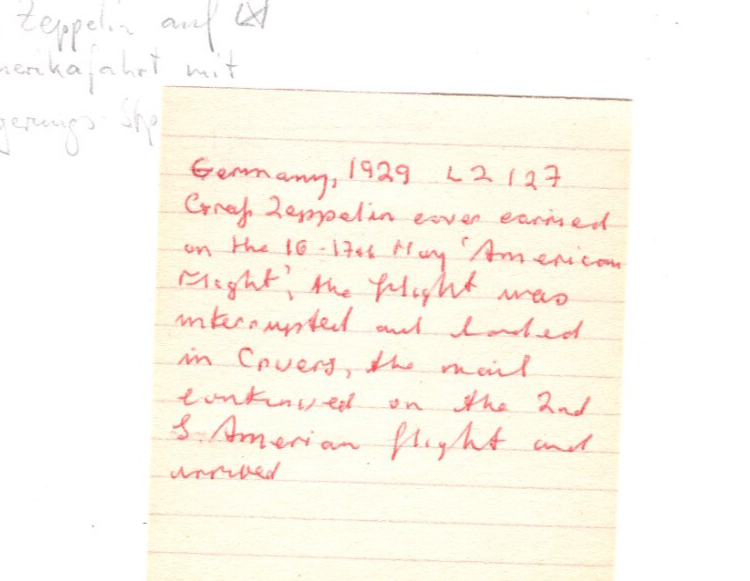 Zeppelin auf
merikafahrt mit
gerungs-Stp
Germany, 1929 LZ 127
Graf Zeppelin cover carried
on the 16-17th May 'American
Flight', the flight was
interrupted and landed
in Cruers, the mail
continued on the 2nd
S. American flight and
arrived